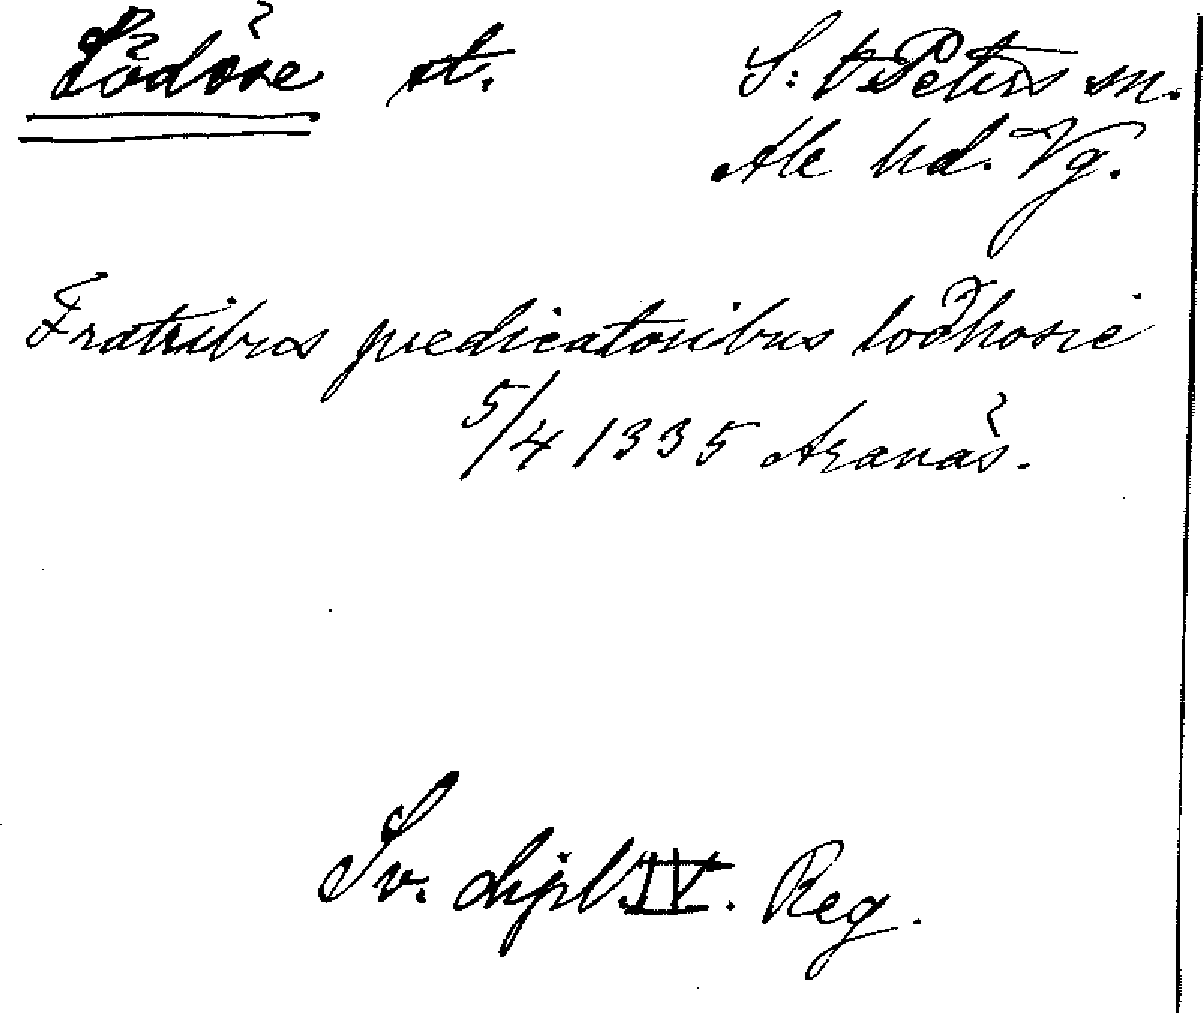 Lödöse st. S:t Peters sn.
Ale hd. Vg.
Fratribus predicatoribus lodhosie
5/4 1335 Aranäs.
Sv. dipl. IV. Reg.